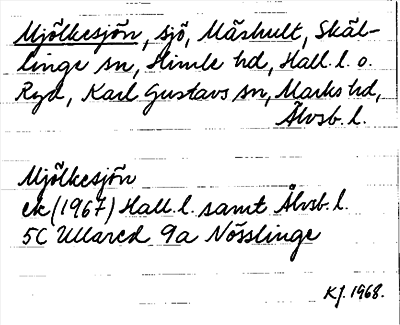 Mjölkesjön, sjö, Mårhult, Skäl-
linge sn, Himle hd, Hall. l. o.
Ryd, Karl Gustavs sn, Marks hd,
Älvsb. l.
Mjölkesjön
ek (1967) Hall. l. samt Älvsb. l.
5C Ullared 9a Nösslinge
KJ. 1968.